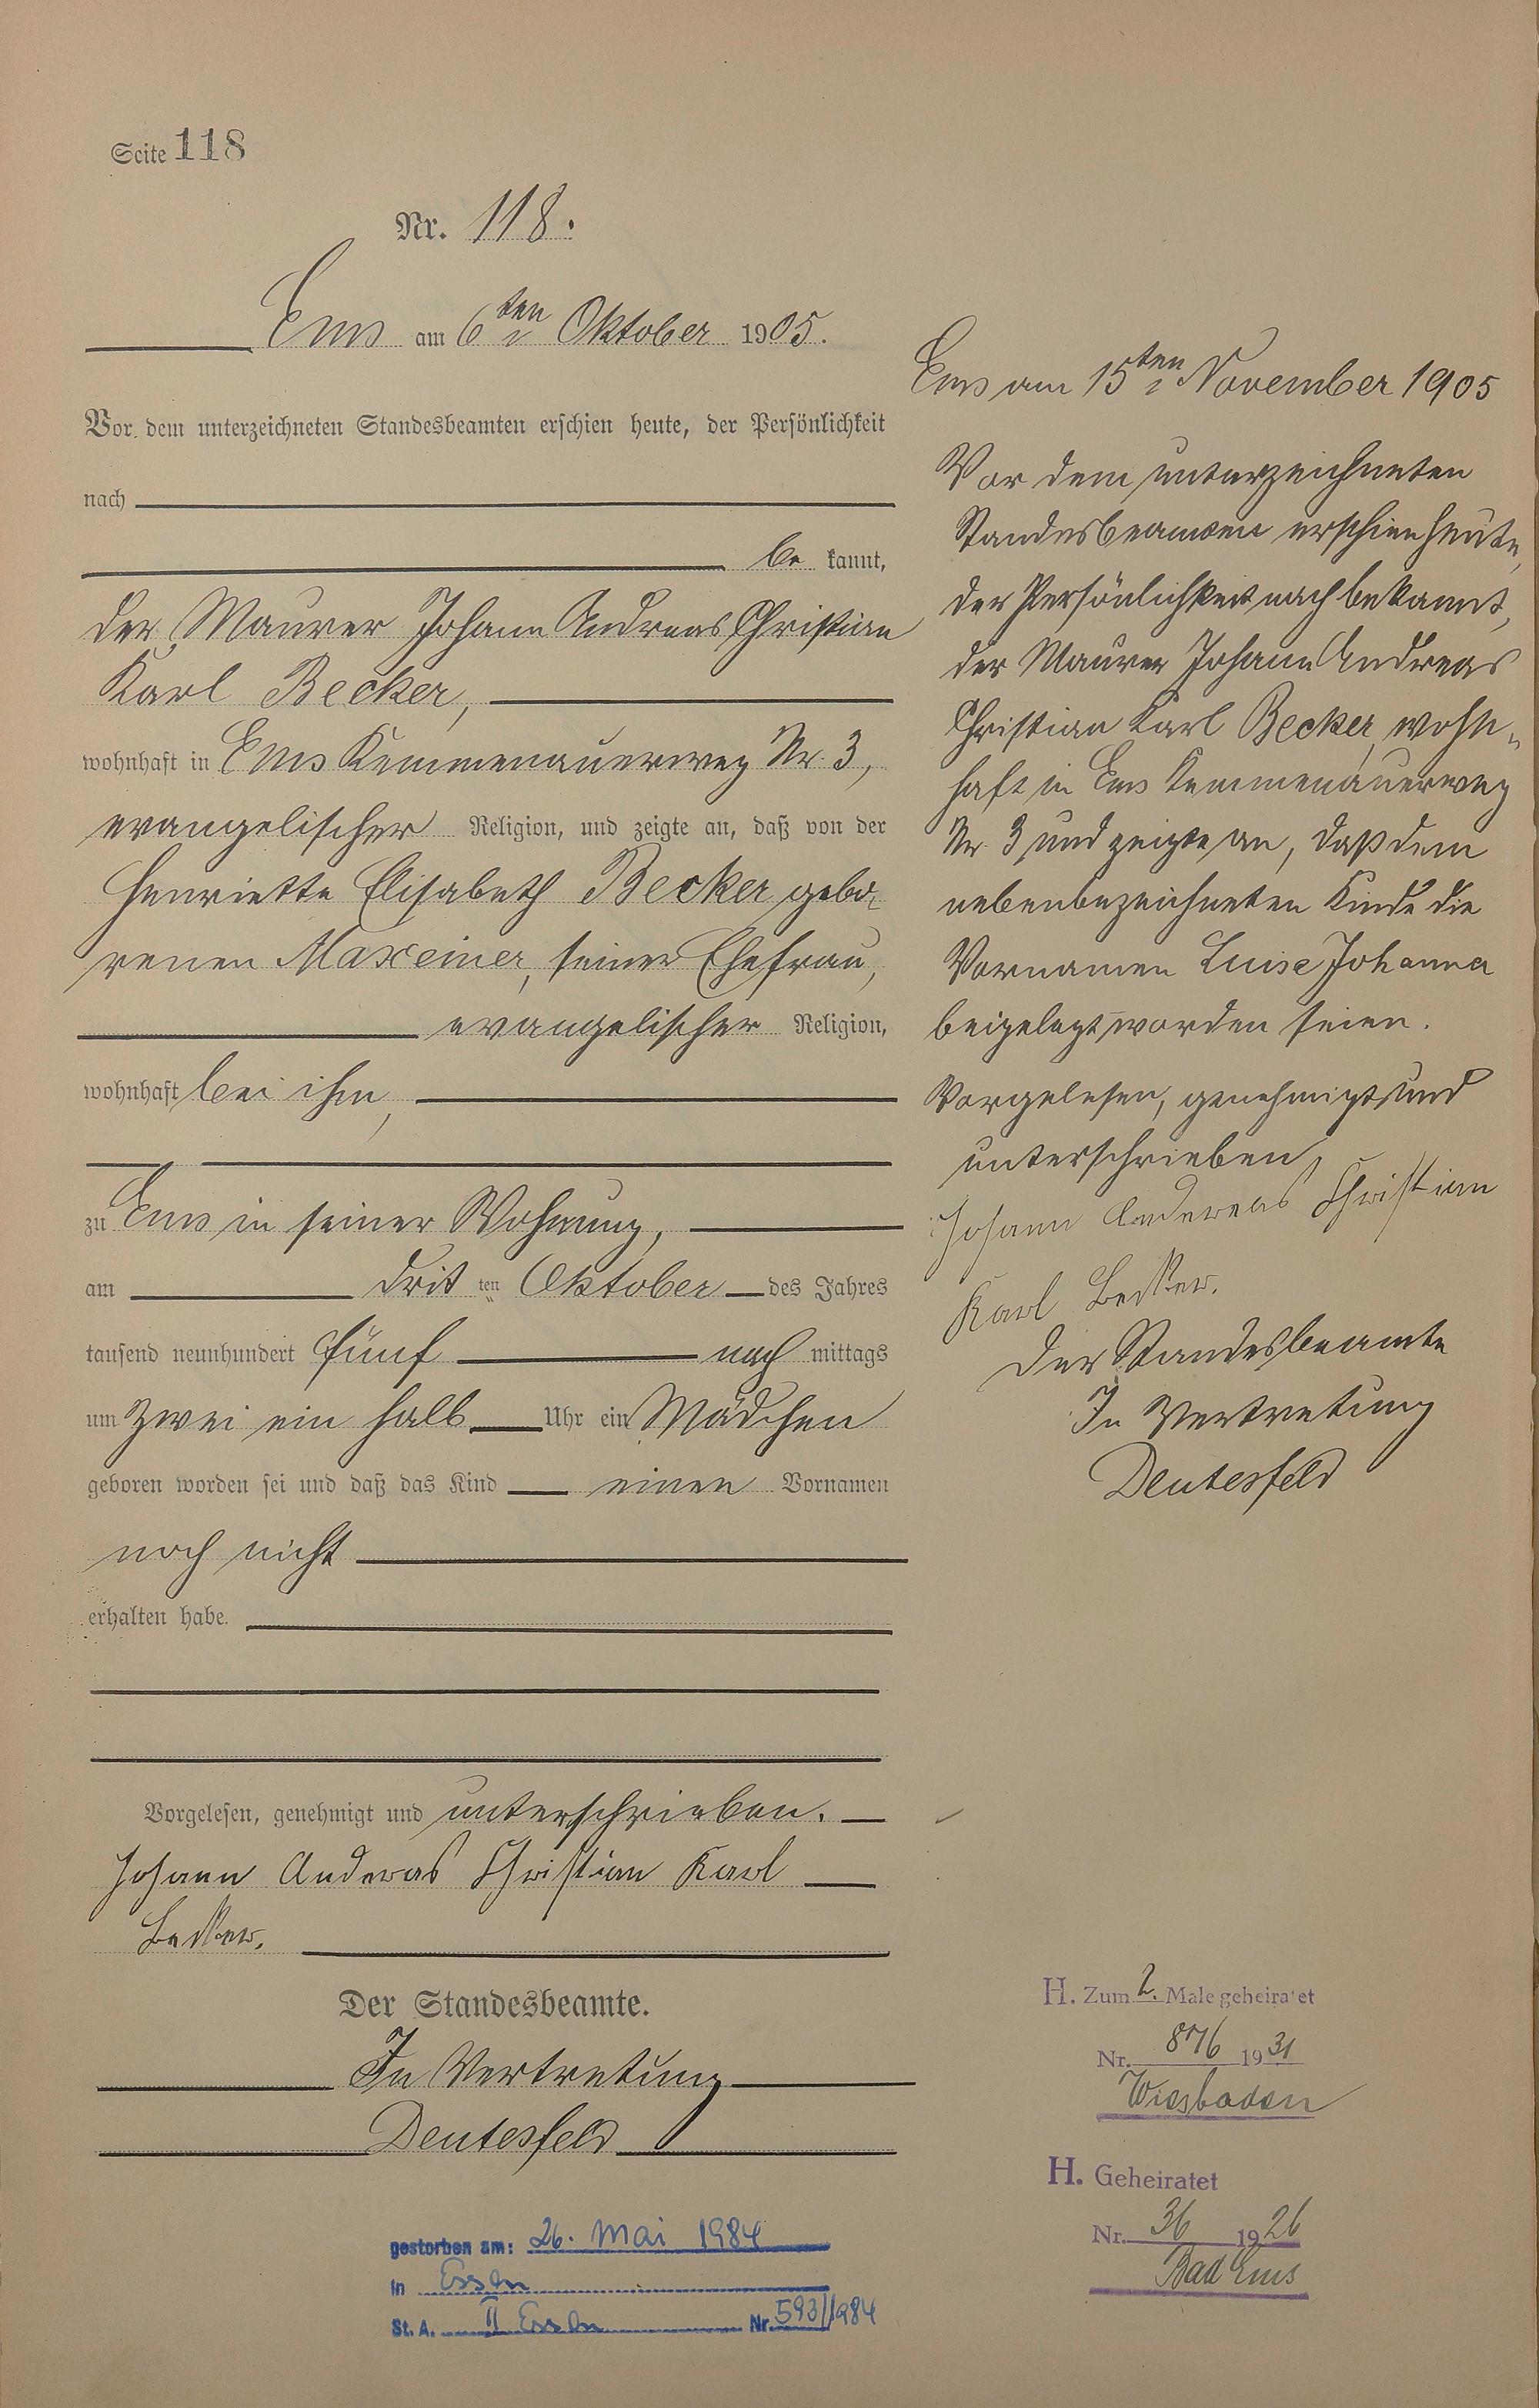 Seite 118
Nr. 118.
Ems am 6ten Oktober 1905.
Vor dem unterzeichneten Standesbeamten erschien heute, der Persönlichkeit
nach
be kannt,
der Maurer Johann Andreas Christian
Karl Becker,
wohnhaft in Ems Kemmenauerweg Nr. 3,
evangelischer Religion, und zeigte an, daß von der
Henriette Elisabeth Becker gebo¬
renen Maxeiner, seiner Ehefrau,
evangelischer Religion,
wohnhaft bei ihm,
zu Ems in seiner Wohnung,
am drit ten Oktober des Jahres
tausend neunhundert fünf nach mittags
um zwei ein halb Uhr ein Mädchen
geboren worden sei und daß das Kind einen Vornamen
noch nicht
erhalten habe.
Vorgelesen, genehmigt und unterschrieben.
Johann Anderas Christian Karl
Becker.
Der Standesbeamte.
In Vertretung
Deutesfeld
gestorben am: 26. Mai 1984
in Essen
St. A. II Essen Nr. 593/1984
Ems am 15ten November 1905
Vor dem unterzeichneten
Standesbeamten erschien heute,
der Persönlichkeit nach bekannt,
der Maurer Johann Andreas
Christian Karl Becker, wohn¬
haft in Ems Kemmenauerweg
Nr. 3 und zeigte an, daß dem
nebenbezeichneten Kinde die
Vornamen Luise Johanna
beigelegt worden seien.
Vorgelesen, genehmigt und
unterschrieben,
Johann Andereas Christian
Karl Becker.
Der Standesbeamte
In Vertretung
Deutesfeld
H. Zum 2. Male geheiratet
Nr. 876 1931
Wiesbaden
H. Geheiratet
Nr. 36 1926
Bad Ems